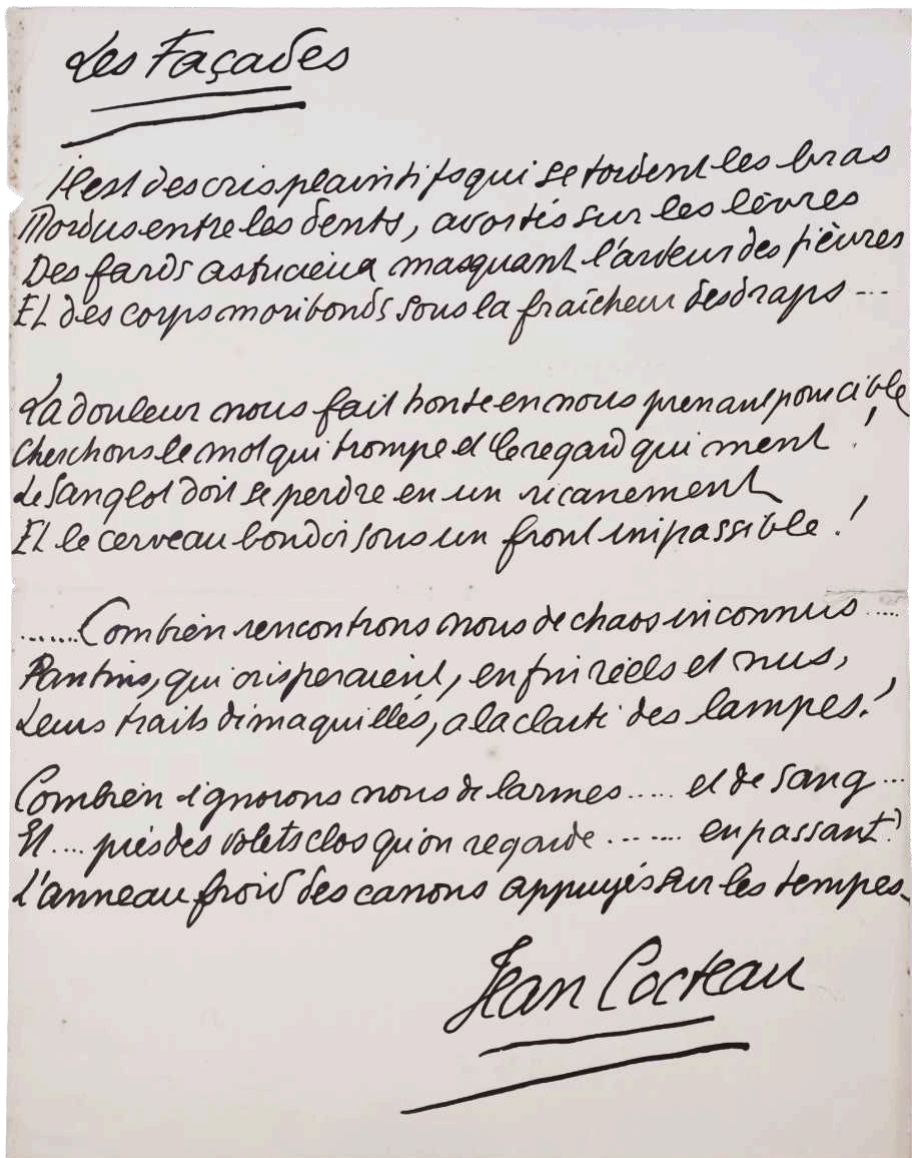 Les Façades
Il est des cris plaintifs qui se tordent les bras
Mordus entre les dents, avortés sur les lèvres
Des fards astucieux masquant l'ardeur des fièvres
Et des corps moribonds sous la fraîcheur des draps ...
La douleur nous fait honte en nous prenant pour cible
Cherchons le mot qui trompe et le regard qui ment !
Le sanglot doit se perdre en un ricanement
Et le cerveau bondir sous un front impassible !
....... Combien rencontrons nous de chaos inconnus .....
Pantins, qui crisperaient, enfin réels et nus,
Leurs traits démaquillés, a la clarté des lampes !
Combien ignorons nous de larmes ..... et de sang ...
Et .... près des volets clos qu'on regarde ....... en passant ?
L'anneau froid des canons appuyés sur les tempes.
Jean Cocteau